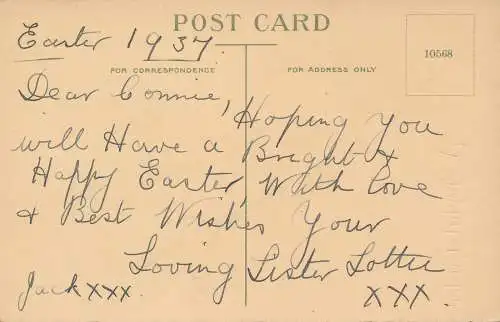 POST CARD
Easter 1937
10568
FOR CORRESPONDENCE
FOR ADDRESS ONLY
Dear Connie,
Hoping You
will Have a Bright &
Happy Easter, With love
& Best Wishes Your
Loving Sister Lottie
Jack xxx.
xxx.